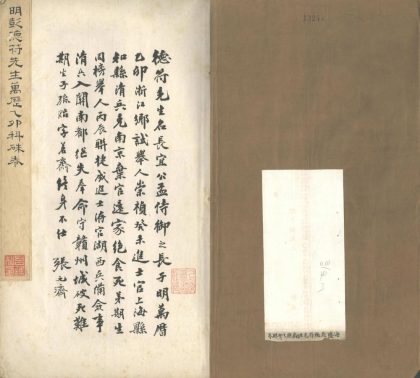 明彭德符先生萬曆乙卯科硃卷
德符先生名長宜公孟侍御之長子明萬曆
乙卯浙江鄉試舉人崇禎癸未進士官上海縣
知縣清兵克南京棄官還家絕食死弟期生
同榜舉人丙辰聯捷成進士洊官湖西兵備僉事
清兵入關南都繼失奉命守贛州城破死難
期生子孫貽字羿仁終身不仕
張元濟